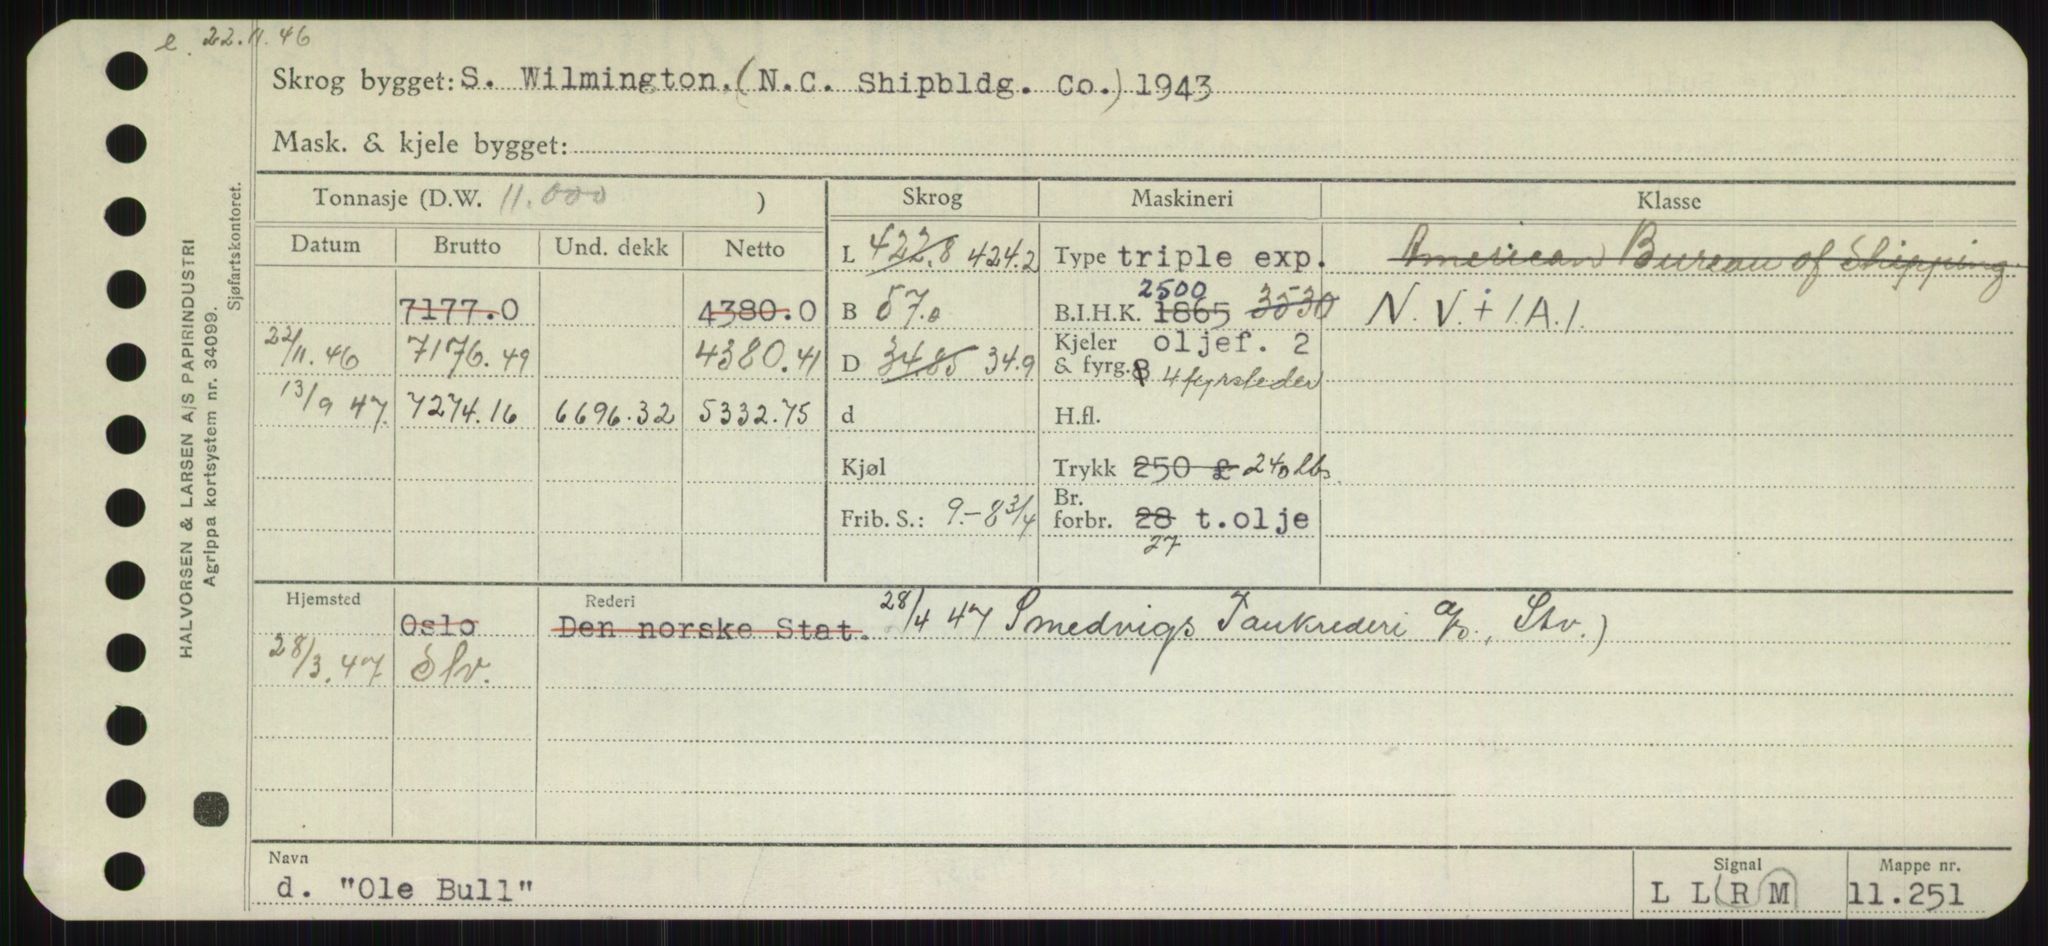 e. 22.11.46
Skrog bygget: S. Wilmington. (N.C. Shipbldg. Co.) 1943
Mask. & kjele bygget:
HALVORSEN & LARSEN A/S PAPIRINDUSTRI
Agrippa kortsystem nr. 34099.
Sjøfartskontoret.
Tonnasje (D.W. 11.000 ) Skrog Maskineri Klasse
Datum Brutto Und. dekk Netto L 422.8 424.2 Type triple exp. American Bureau of Shipping
2500
7177.0 4380.0 B 57.0 B.I.H.K. 1865 3530 N.V. + 1A.1.
22/11.46 7176.49 4380.41 D 34.85 34.9 Kjeler oljef. 2
& fyrg. 8 4 fyrsteder
13/9 47. 7274.16 6696.32 5332.75 d H.fl.
Kjøl Trykk 250 £ 240 lbs.
Frib. S.: 9.-8 3/4 Br. forbr. 28 t.olje
27
Hjemsted Rederi
Oslo Den norske Stat. 28/4 47 Smedvigs Tankrederi A/S, Stv.)
28/3.47 Stv.
Navn Signal Mappe nr.
d. "Ole Bull" L L R M 11.251